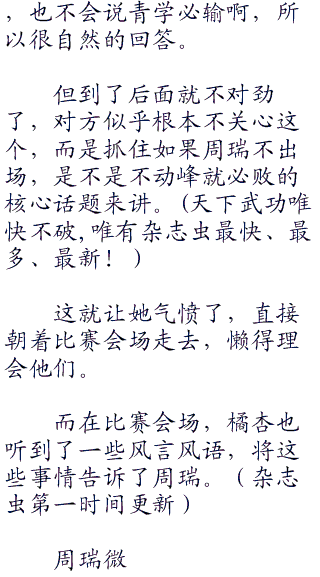 ，也不会说青学必输啊，所
以很自然的回答。
但到了后面就不对劲
了，对方似乎根本不关心这
个，而是抓住如果周瑞不出
场，是不是不动峰就必败的
核心话题来讲。(天下武功唯
快不破,唯有杂志虫最快、最
多、最新！ )
这就让她气愤了，直接
朝着比赛会场走去，懒得理
会他们。
而在比赛会场，橘杏也
听到了一些风言风语，将这
些事情告诉了周瑞。( 杂志
虫第一时间更新 )
周瑞微